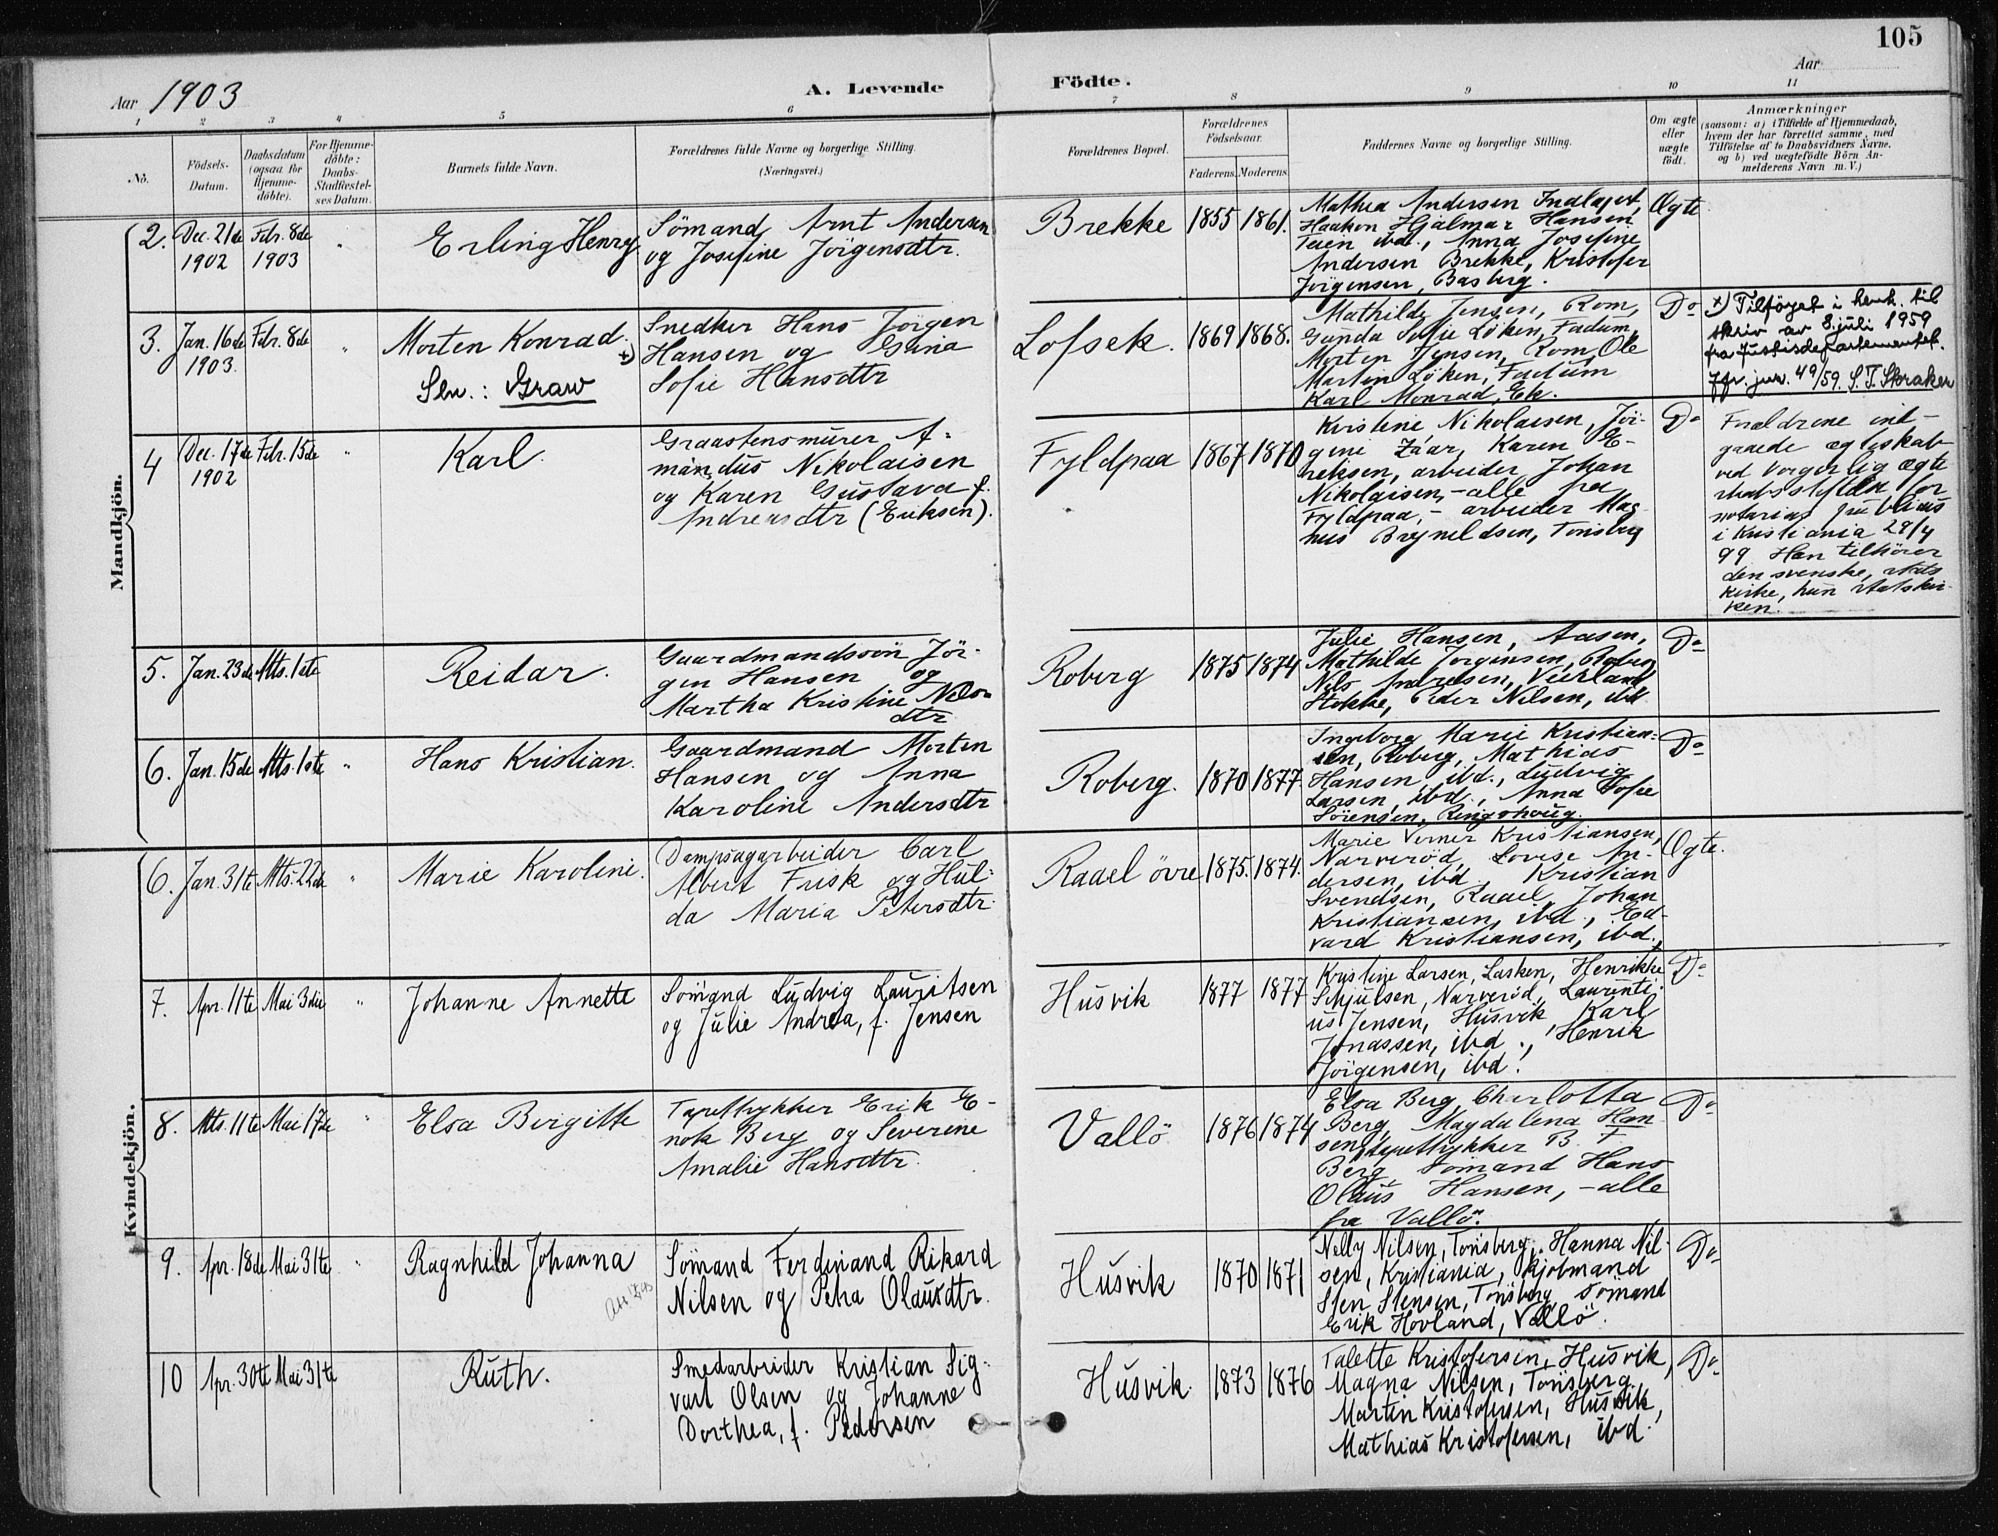 105
Aar 1903
A. Levende Födte.
Aar
1 2 3 4 5 6 7 8 9 10 11
No.
Födsels-
Datum.
Daabsdatum
(ogsaa for
Hjemme-
döbte).
For Hjemme-
döbte:
Daabs-
Stadfæstel-
ses Datum.
Barnets fulde Navn.
Forældrenes fulde Navne og borgerlige Stilling.
(Næringsvei.)
Forældrenes Bopæl.
Forældrenes
Födselsaar.
Faderens. Moderens.
Faddernes Navne og borgerlige Stilling.
Om ægte
eller
uægte
födt.
Anmærkninger
(saasom: a) i Tilfælde af Hjemmedaab,
hvem der har forrettet samme, med
Tilföielse af to Daabsvidners Navne,
og b) ved uægtefödte Börn An-
melderens Navn m. V.)
Mandkjön.
2. Dec. 21de
1902
Febr. 8de
1903
"
Erling Henry
Sömand Arnt Andersen
og Josefine Jörgensdtr.
Brekke
1855 1861.
Mathea Andersen Indlaget
Haakon Hjalmar Hansen
Teien ibd., Anna Josefine
Andersen Brekke, Kristofer
Jörgensen, Basberg.
Ægte
3. Jan. 16de
1903.
Febr. 8de
"
Morten Konrad.
+)
Sln.: Graw
Snedker Hans Jörgen
Hansen og Gina
Sofie Hansdtr
Lofsek.
1869 1868.
Mathilde Jensen, Rom,
Gunda Sofie Löken, Fadum,
Morten Jensen, Rom, Ole
Martin Löken, Fadum
Karl Monrad, Ek.
Do
+) Tilföyet i henh. til
skriv av 8. juli 1959
fra Justisdepartementet.
Jfr. jnr. 49/59. S. T. Skraker
4 Dec. 17de
1902
Febr. 15de
"
Karl.
Graastensmurer A-
mandus Nikolaisen
og Karen Gustava f.
Andreasdtr (Eriksen).
Fyldpaa
1867 1870
Kristine Nikolaisen, Jör-
gine Zaar, Karen E-
reksen, arbeider Johan
Nikolaisen, - alle fra
Fyldpaa, - arbeider Mag-
nus Brynildsen, Tönsberg
Do
Forældrene ind-
gaaede ægteskab
ved borgerlig ægte
skabsstiftelse for
notarius publicus
i Kristiania 29/4
99. Han tilhörer
den svenske stats
kirke, hun statskir
ken.
5. Jan. 23de Mts. 1ste
Reidar.
Gaardmandssön Jör-
gen Hansen og
Martha Kristine Nils-
dtr
Roberg
1875 1874
Julie Hansen, Aasen,
Mathilde Jörgensen, Roberg
Nils Andresen, Vierland
Stokke, Peder Nilsen, ibd.
Do
6. Jan. 15de Mts. 1ste "
Hans Kristian.
Gaardmand Morten
Hansen og Anna
Karoline Andersdtr
Roberg.
1870 1877.
Ingeborg Marie Kristian-
sen, Roberg, Mathias
Hansen ibd., Ludvig
Larsen, ibd., Anna Sofie
Sörensen, Ringshoug.
Do
Kvindekjön.
6. Jan. 31te Mts. 22de "
Marie Karoline.
Dampsagarbeider Carl
Albert Frisk og Hul-
da Maria Petersdtr.
Raael övre
1875. 1874.
Marie Verner Kristiansen,
Narveröd, Lovise An-
dersen, ibd., Kristian
Svendsen, Raael, Johan
Kristiansen, ibd., Ed-
vard Kristiansen, ibd.
Ægte.
7. Apr. 11te Mai 3die "
Johanne Annette
Sömand Ludvig Lauritsen
og Julie Andrea, f. Jensen
Husvik
1877 1877
Kristine Larsen, Lasken, Henrikke
Skjulsen, Narveröd, Laurenti-
us Jensen, Husvik, Karl
Jonassen, ibd., Henrik
Jörgensen, ibd.
Do
8. Mts. 11te Mai 17de "
Elsa Birgitte
Tapettrykker Erik E-
nok Berg og Severine
Amalie Hansdtr.
Vallö
1876 1874
Elsa Berg, Charlotta
Berg, Magdalena Han-
sen, tapettrykker B. F.
Berg, sömand Hans
Olaus Hansen, - alle
fra Vallö.
Do
9. Apr. 18de Mai 31te "
Ragnhild Johanna
Sömand Ferdinand Rikard
Nilsen og Petra Olausdtr.
Husvik
1870 1871
Nelly Nilsen, Tönsberg, Hanna Nil-
sen, Kristiania, kjöbmand
Sten Stensen, Tönsberg, Sömand
Erik Hovland, Vallö.
Do
10 Apr. 30te Mai 31te
Ruth.
Smedarbeider Kristian Sig-
vart Olsen og Johanne
Dorthea, f. Pedersen
Husvik.
1873 1876
Talette Kristofersen, Husvik,
Magna Nilsen, Tönsberg,
Martin Kristofersen, Husvik,
Mathias Kristofersen, ibd.
Do